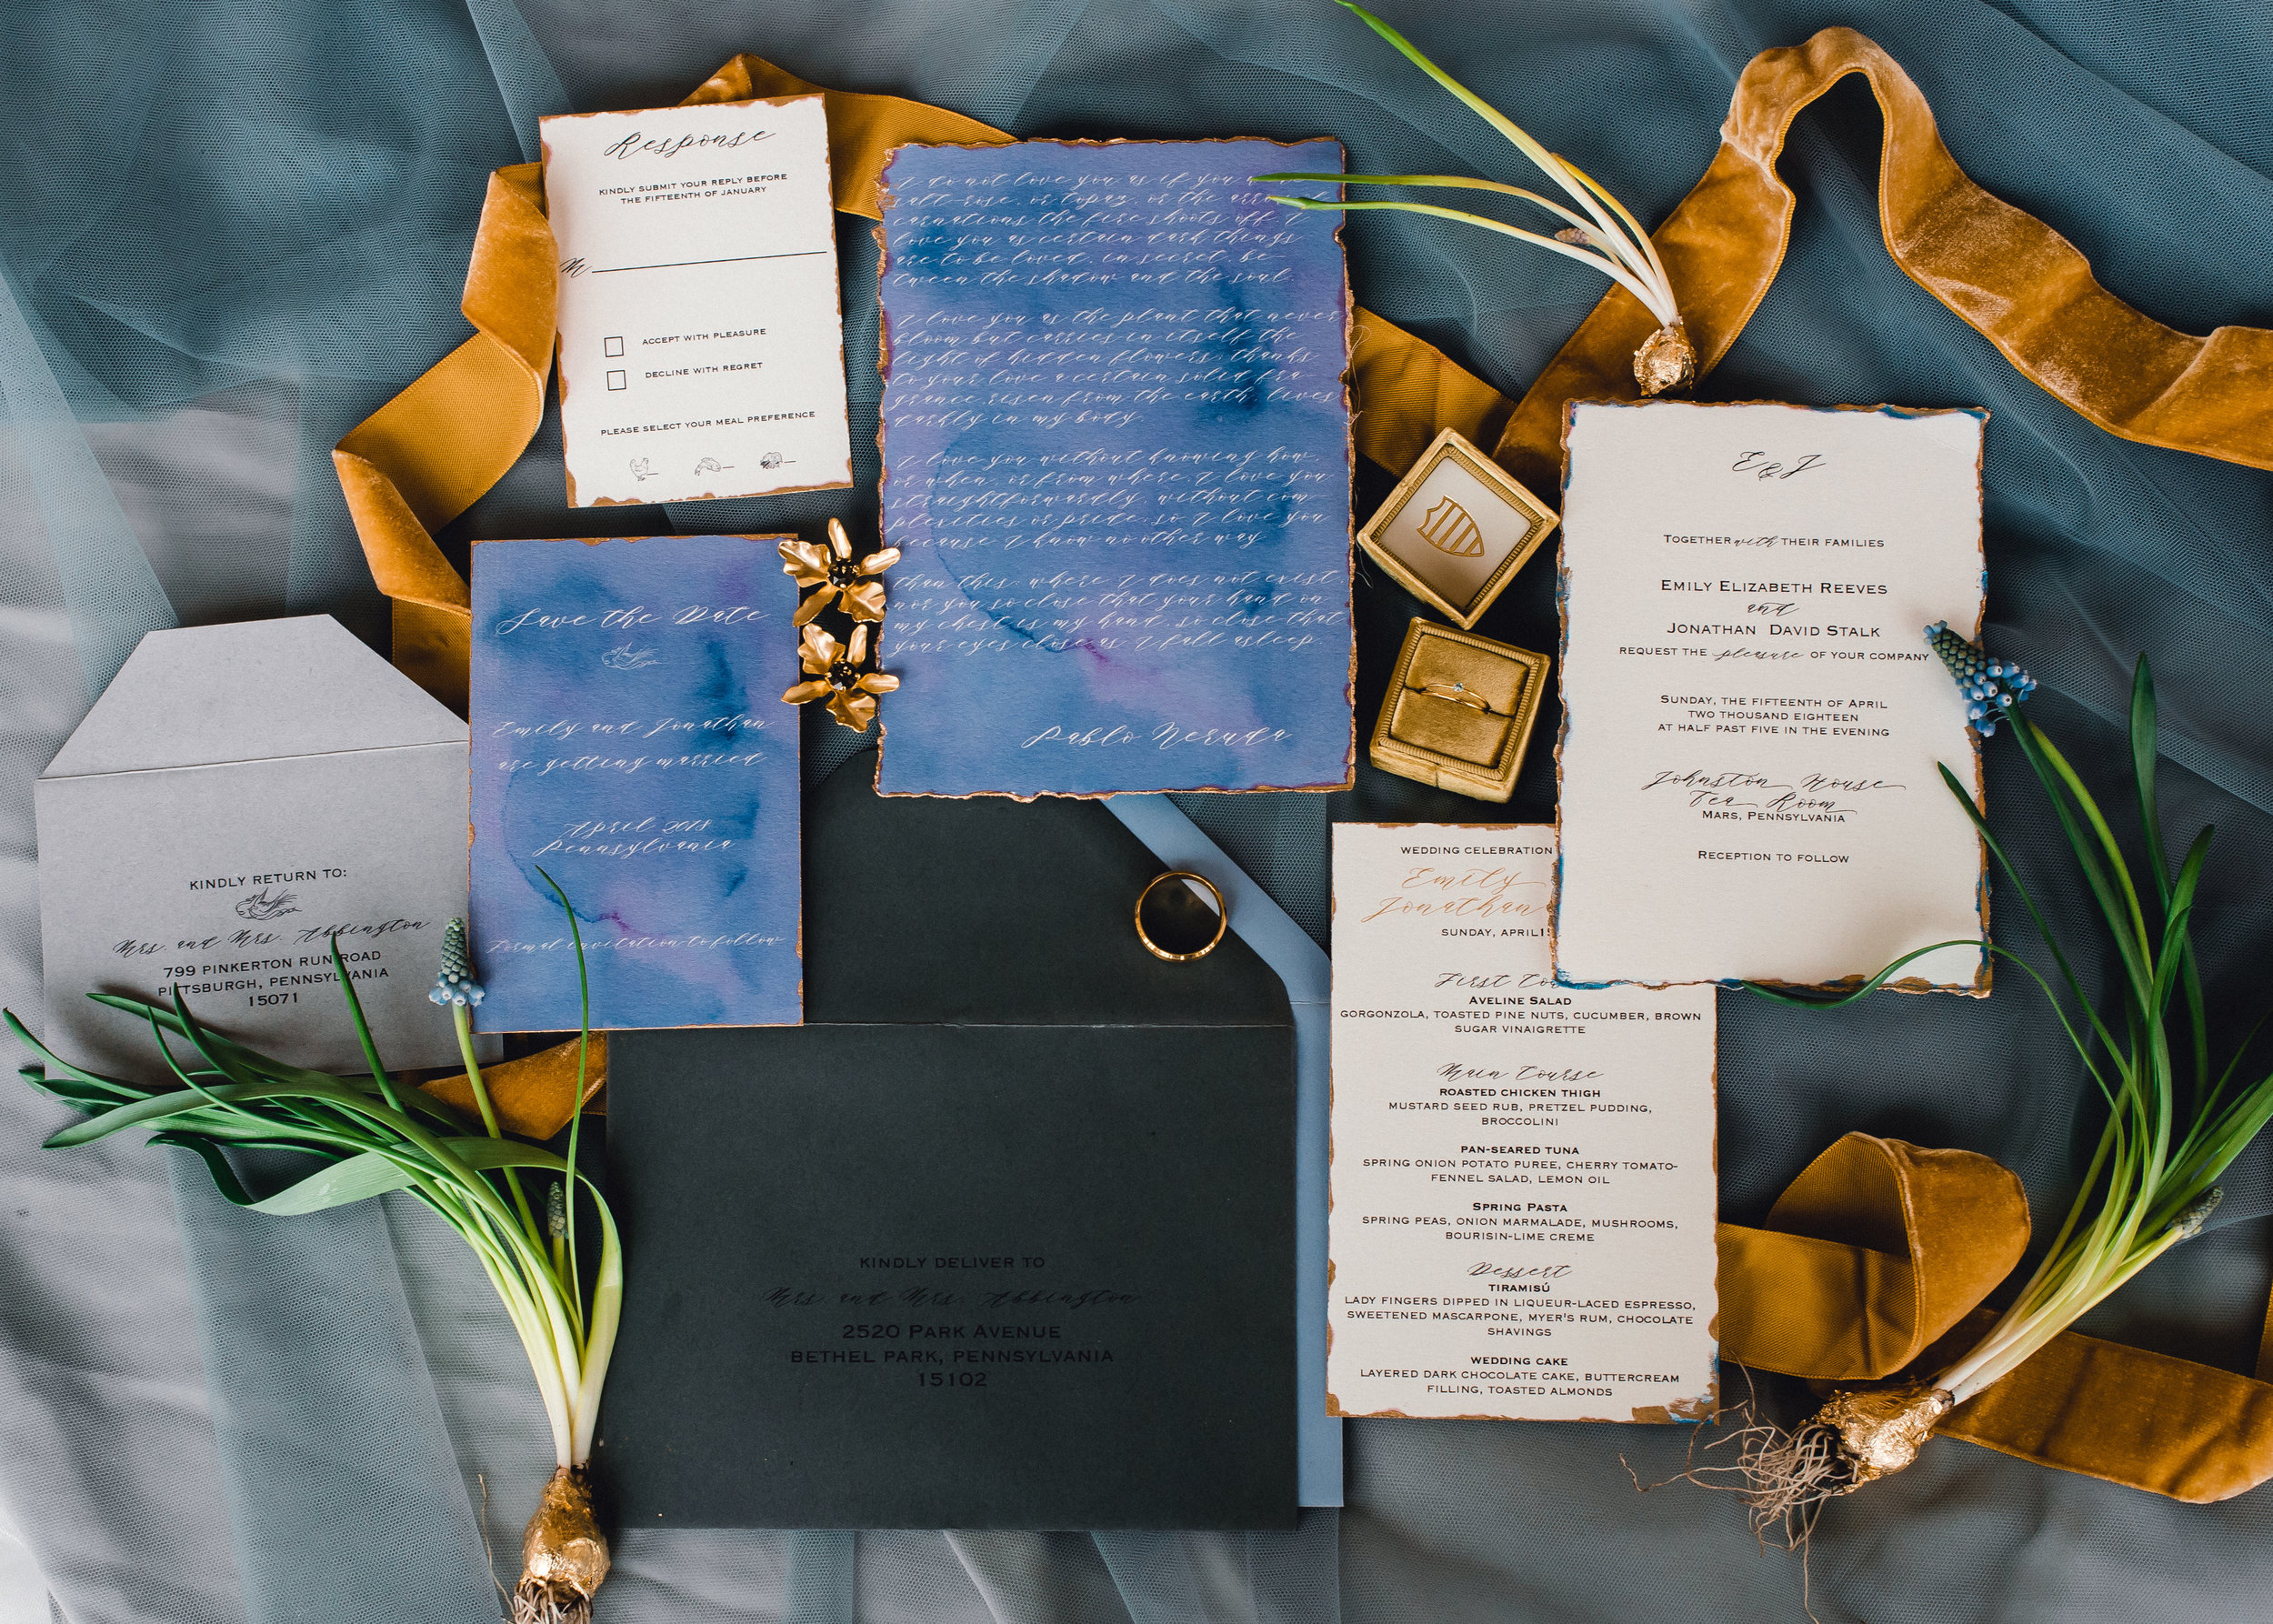 Response
KINDLY SUBMIT YOUR REPLY BEFORE
THE FIFTEENTH OF JANUARY
M
ACCEPT WITH PLEASURE
DECLINE WITH REGRET
PLEASE SELECT YOUR MEAL PREFERENCE
I do not love you as if you
salt-rose, or topaz, or the
carnations the fire shoots off. I
love you as certain dark things
are to be loved, in secret, be
tween the shadow and the soul.
I love you as the plant that never
bloom but carries in itself the
light of hidden flowers, thanks
to your love a certain solid fra
grance, risen from the earth, lives
darkly in my body.
I love you without knowing how,
or when, or from where. I love you
straightforwardly, without com-
plexities or pride, so I love you
because I know no other way
than this: where I does not exist,
nor you so close that your hand on
my chest is my hand, so close that
your eyes close as I fall asleep.
Pablo Neruda
Save the Date
Emily and Jonathan
are getting married
April 2018
Pennsylvania
Formal invitation to follow
KINDLY RETURN TO:
Mrs. and Mrs. Abbington
799 PINKERTON RUN ROAD
PITTSBURGH, PENNSYLVANIA
15071
KINDLY DELIVER TO
Mrs. and Mrs. Abbington
2520 PARK AVENUE
BETHEL PARK, PENNSYLVANIA
15102
E & J
TOGETHER with THEIR FAMILIES
EMILY ELIZABETH REEVES
and
JONATHAN DAVID STALK
REQUEST THE pleasure OF YOUR COMPANY
SUNDAY, THE FIFTEENTH OF APRIL
TWO THOUSAND EIGHTEEN
AT HALF PAST FIVE IN THE EVENING
Johnston House
Tea Room
MARS, PENNSYLVANIA
RECEPTION TO FOLLOW
WEDDING CELEBRATION
Emily
Jonathan
SUNDAY, APRIL
First
AVELINE SALAD
GORGONZOLA, TOASTED PINE NUTS, CUCUMBER, BROWN
SUGAR VINAIGRETTE
Main Course
ROASTED CHICKEN THIGH
MUSTARD SEED RUB, PRETZEL PUDDING,
BROCCOLINI
PAN-SEARED TUNA
SPRING ONION POTATO PUREE, CHERRY TOMATO-
FENNEL SALAD, LEMON OIL
SPRING PASTA
SPRING PEAS, ONION MARMALADE, MUSHROOMS,
BOURISIN-LIME CREME
Dessert
TIRAMISÚ
LADY FINGERS DIPPED IN LIQUEUR-LACED ESPRESSO,
SWEETENED MASCARPONE, MYER'S RUM, CHOCOLATE
SHAVINGS
WEDDING CAKE
LAYERED DARK CHOCOLATE CAKE, BUTTERCREAM
FILLING, TOASTED ALMONDS